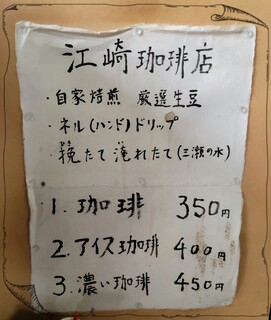 江崎珈琲店
・自家焙煎 厳選生豆
・ネル(ハンド)ドリップ
・挽たて 淹れたて(三瀬の水)
1. 珈琲 350円
2. アイス珈琲 400円
3. 濃い珈琲 450円